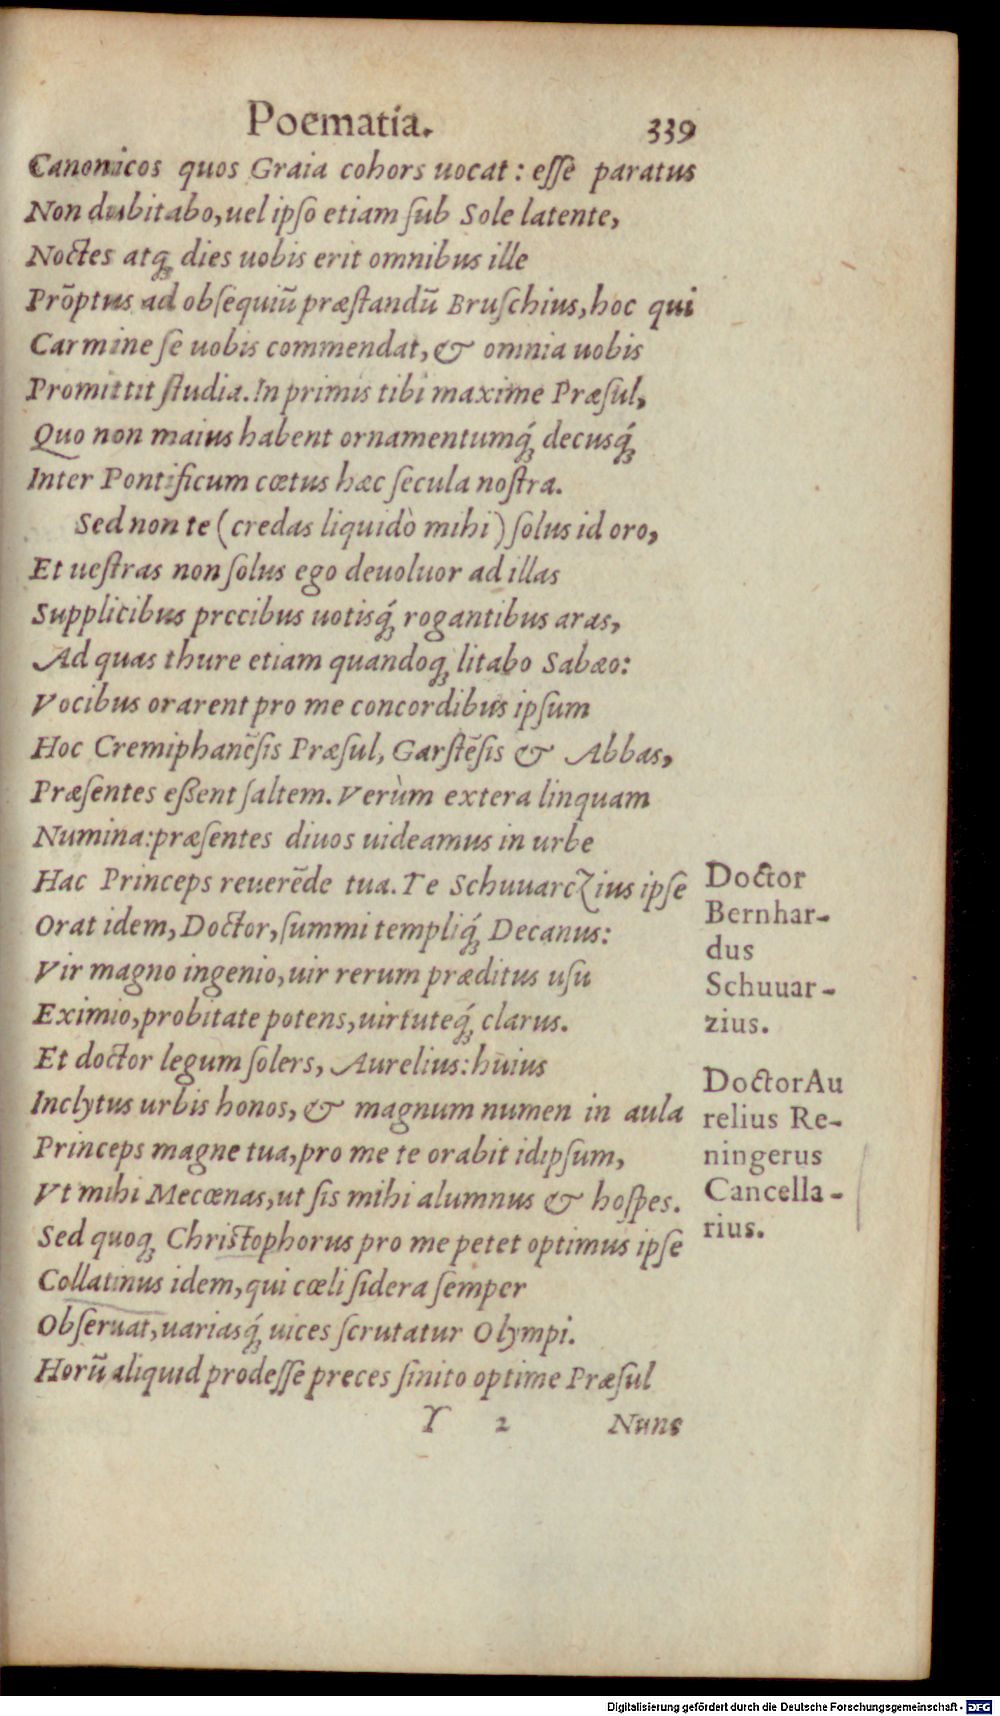 Poematia. 339
Canonicos quos Graia cohors uocat: esse paratus
Non dubitabo, uel ipso etiam sub Sole latente,
Noctes atq; dies uobis erit omnibus ille
Prõptus ad obsequiũ præstandũ Bruschius, hoc qui
Carmine se uobis commendat, & omnia uobis
Promittit studia. In primis tibi maxime Præsul,
Quo non maius habent ornamentumq́; decusq́;
Inter Pontificum cœtus hæc secula nostra.
Sed non te (credas liquidò mihi) solus id oro,
Et uestras non solus ego deuoluor ad illas
Supplicibus precibus uotisq́; rogantibus aras,
Ad quas thure etiam quandoq; litabo Sabæo:
Vocibus orarent pro me concordibus ipsum
Hoc Cremiphanẽsis Præsul, Garstẽsis & Abbas,
Præsentes eßent saltem. Verùm extera linquam
Numina: præsentes diuos uideamus in urbe
Hac Princeps reuerẽde tua. Te Schuuarczius ipse
Orat idem, Doctor, summi templiq́; Decanus:
Vir magno ingenio, uir rerum præditus usu
Eximio, probitate potens, uirtuteq́; clarus.
Et doctor legum solers, Aurelius: huius
Inclytus urbis honos, & magnum numen in aula
Princeps magne tua, pro me te orabit idipsum,
Vt mihi Mecœnas, ut sis mihi alumnus & hospes.
Sed quoq; Christophorus pro me petet optimus ipse
Collatinus idem, qui cœli sidera semper
Obseruat, uariasq́; uices scrutatur Olympi.
Horũ aliquid prodesse preces sinito optime Præsul
Y 2 Nunc
Doctor
Bernhar-
dus
Schuuar-
zius.
Doctor Au
relius Re-
ningerus
Cancella-
rius.
Digitalisierung gefördert durch die Deutsche Forschungsgemeinschaft - DFG